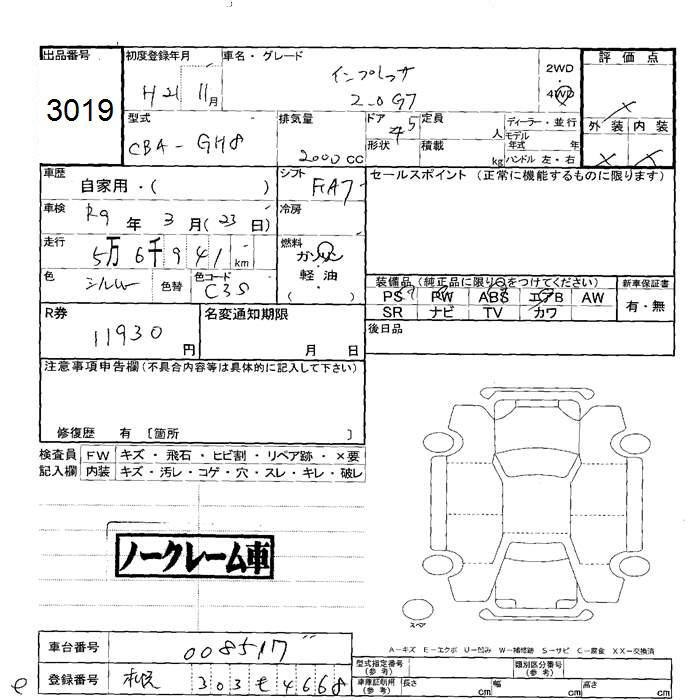 出品番号 初度登録年月 車名・グレード 評価点
3019 H21 11月 インプレッサ 2WD・4WD
2.0 GT 外装 内装
型式 排気量 ドア 定員 ディーラー・並行
CBA-GH8 2000 CC 5 人 モデル年式 年
形状 積載 kg ハンドル 左・右
車歴 自家用・( ) シフト FAT セールスポイント (正常に機能するものに限ります)
車検 R9年 3月(23日) 冷房
走行 5万6千941km 燃料 ガソリン
軽油
( )
色 シルバー 色替 色コード C3S
装備品 (純正品に限り○をつけてください) 新車保証書
PS PW ABS エアB AW 有・無
SR ナビ TV カワ
R券 11930円 名変通知期限 月 日 後日品
注意事項申告欄 (不具合内容等は具体的に記入して下さい)
修復歴 有 [箇所 ]
検査員 FW キズ・飛石・ヒビ割・リペア跡・×要
記入欄 内装 キズ・汚レ・コゲ・穴・スレ・キレ・破レ
ノークレーム車
スペア
A-キズ E-エクボ U-凹み W-補修跡 S-サビ C-腐食 XX-交換済
車台番号 008517
登録番号 札幌 303 も 4668
型式指定番号(参考) 類別区分番号(参考)
車庫証明用(参考) 長さ cm 幅 cm 高さ cm